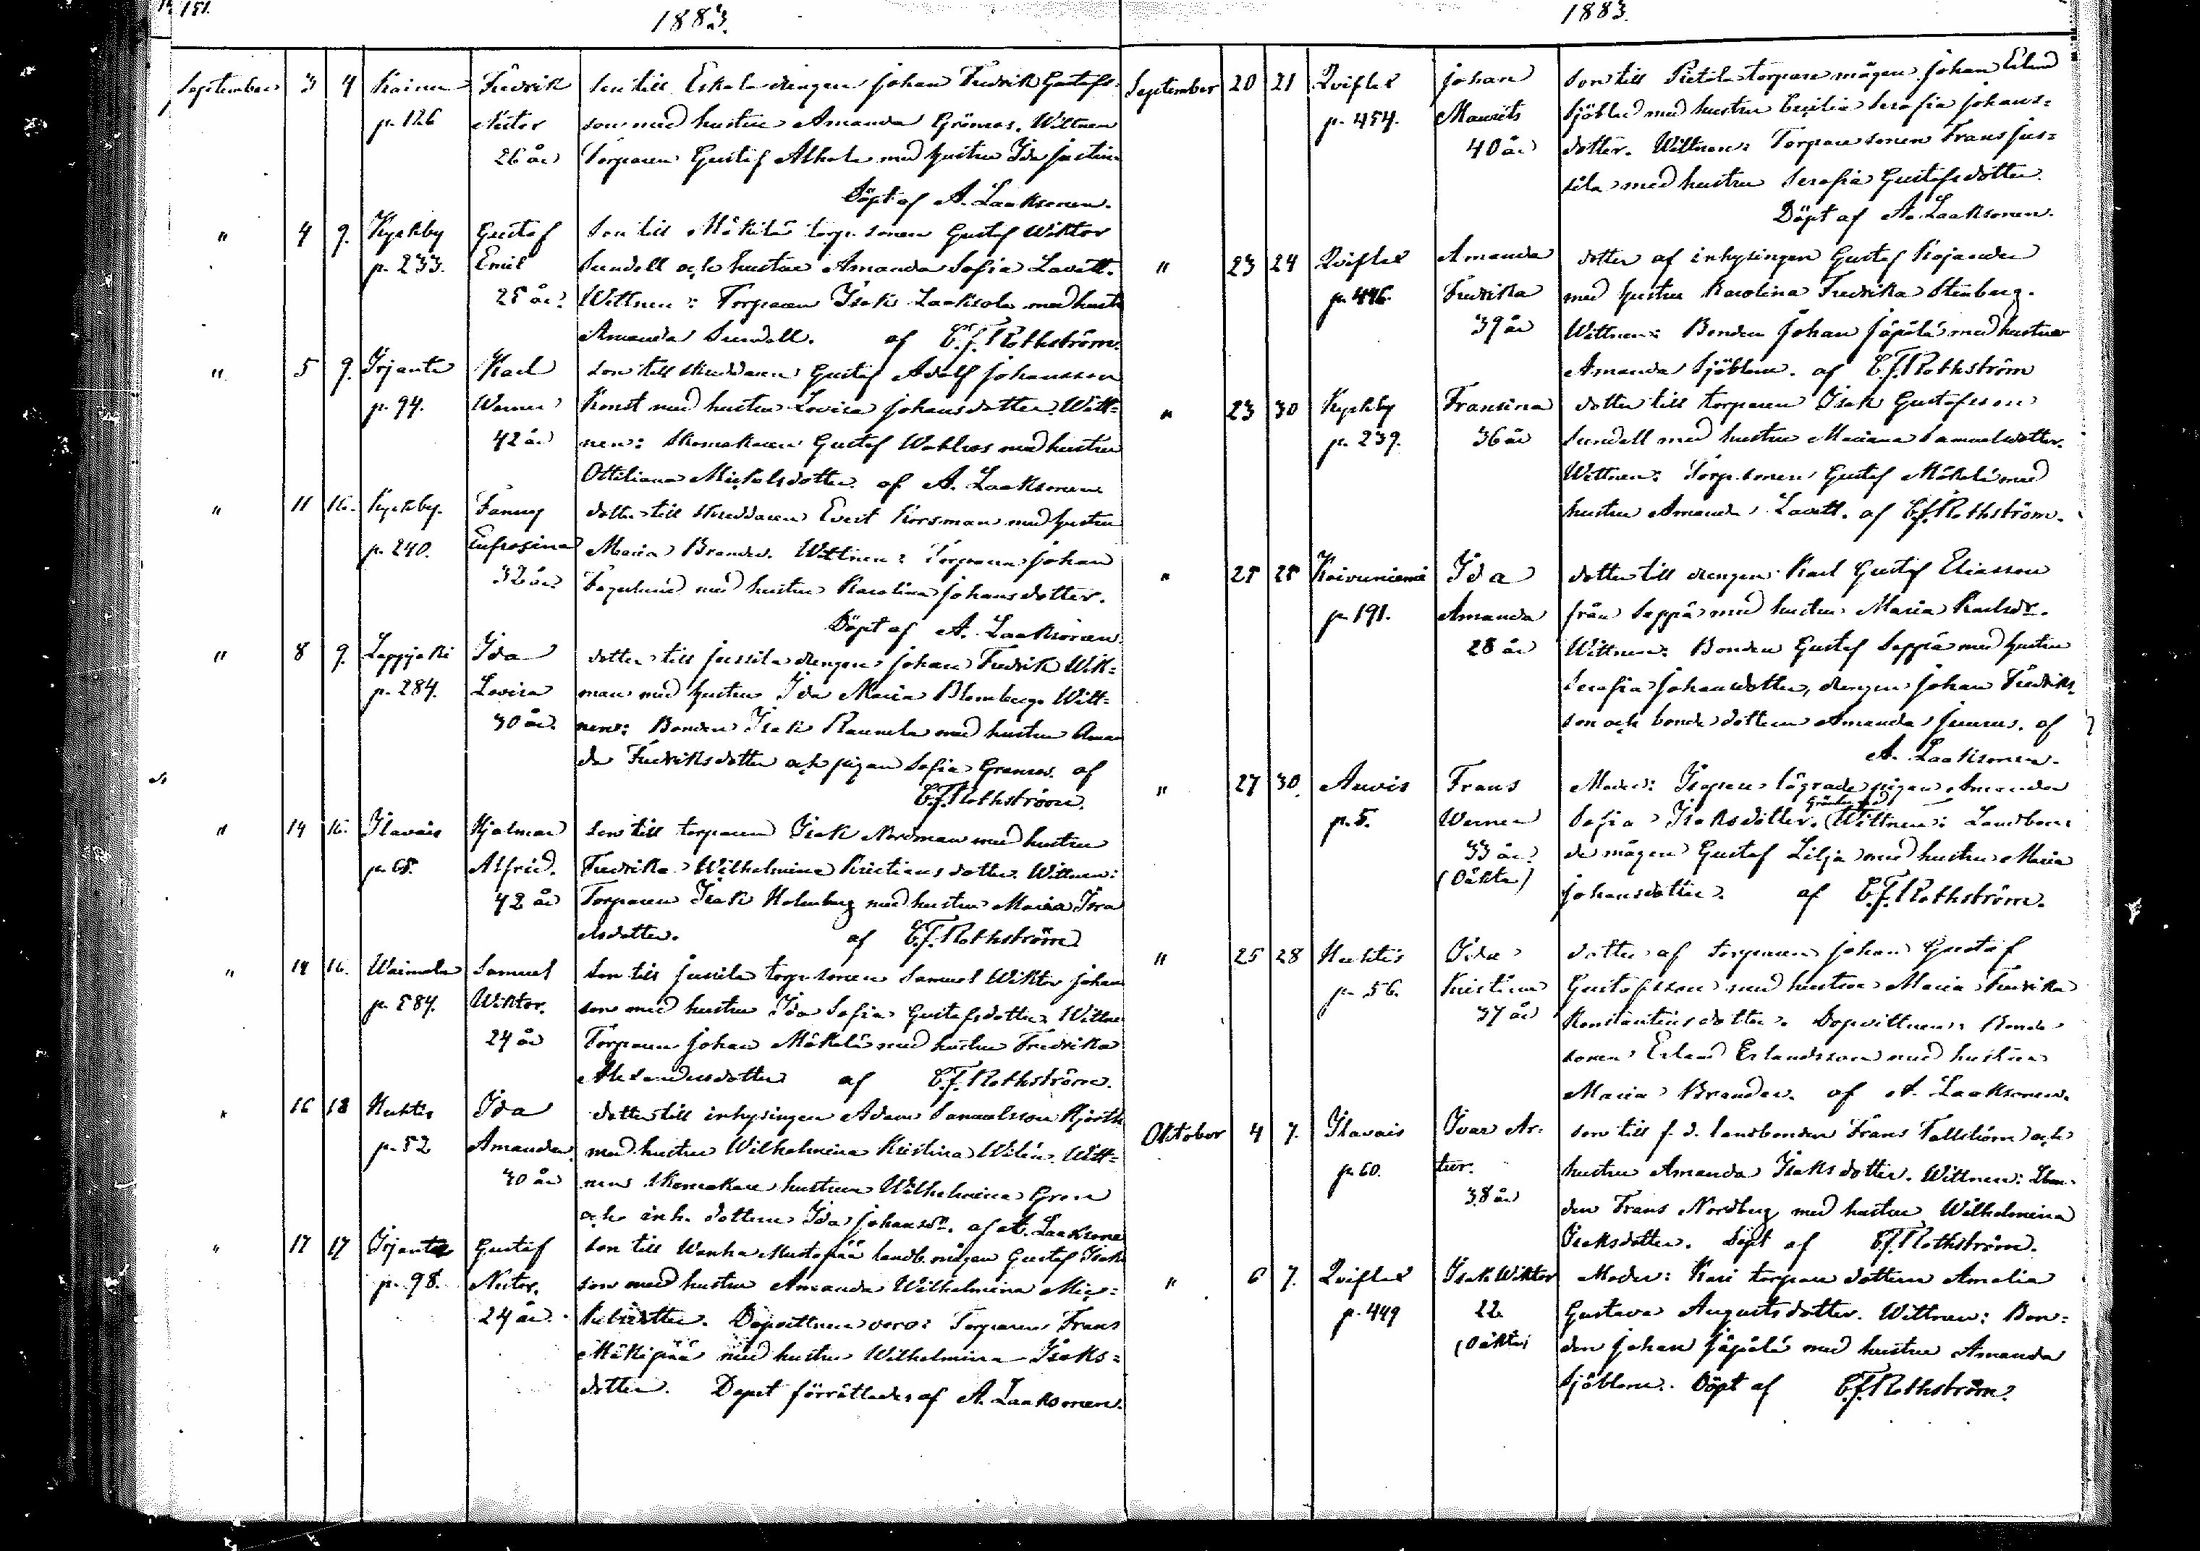 151.
1883.
September 3 4 Koinen Fredrik Son till Eskola drengen Johan Fredrik Gustafs-
p. 126 Nestor son med hustru Amanda Grönroos. Wittnen
26 år Torparen Gustaf Alhola med hustru Ida Justin
Döpt af A. Laaksonen.
" 4 9. Kyrkby Gustaf Son till Mäkilä torp. sonen Gustaf Wiktor
p. 233. Emil Sundell och hustru Amanda Sofia Lavett.
25 år. Wittnen: Torparen Isak Laaksola med hust
Amanda Sundell. af C. F. Rothström.
" 5 9. Irjante Karl Son till skräddaren Gustaf Adolf Johansson
p. 94. Werner Konst med hustru Lovisa Johansdotter Witt=
42 år nen: Skomakaren Gustaf Wahlroos med hustru
Ottiliana Mickelsdotter af A. Laaksonen
" 11 16. Kyrkby. Fanny dotter till skreddaren Evert Korsman med hustru
p. 240. Eufrosina Maria Brander. Wittnen: Torparen Johan
32 år. Fagerlund med hustru Karolina Johansdotter.
Döpt af A. Laaksonen.
" 8 9. Lappijoki Ida dotter till Jussila drengen Johan Fredrik Wik=
p. 284. Lovisa man med hustru Ida Maria Blomberg. Witt=
30 år. nen: Bonden Isak Raunela med hustru Aman
da Fredriksdotter och pigan Sofia Granroos. af
C. F. Rothström.
" 14 16. Ilavais Hjalmar Son till torparen Isak Nordman med hustru
p. 68. Alfrid. Fredrika Wilhelmina Kristiansdotter. Wittnen:
42 år Torparen Isak Holmberg med hustru Maria Isra
elsdotter. af C. F. Rothström
" 14 16. Waimala Samuel Son till Jussila torp. sonen Samuel Wiktor Johan
p. 584. Wiktor. son med hustru Ida Sofia Gustafsdotter. Wittne
24 år Torparen Johan Mäkelä med hustru Fredrika
Alexandersdotter af C. F. Rothström.
" 16 18 Huhtis Ida dotter till inhysingen Adam Samuelsson Hjorth
p. 52 Amanda. med hustru Wilhelmina Kristina Wilén. Witt=
30 år nen skomakare hustrun Wilhelmina Gron
och inh. dottern Ida Johansdr. af A. Laaksone
" 17 17 Irjante Gustaf Son till Wanha Mustapää landb. mågen Gustaf Isak
p. 98. Nestor. son med hustru Amanda Wilhelmina Mic=
24 år. kelsdotter. Dopvittnen voro: Torparen Frans
Mäkipää med hustru Wilhelmina Isaks=
dotter. Dopet förrättades af A. Laaksonen.
1883.
September 20 21 Kviflax Johan Son till Pietilä torpare mågen Johan Erland
p. 454. Maurits Sjöblom med hustru Cecilia Serafia Johans=
40 år dotter. Wittnen: Torpare sonen Frans Jus=
sila med hustru Serafia Gustafsdotter.
Döpt af A. Laaksonen.
" 23 24 Kviflax Amanda dotter af inhysingen Gustaf Kojander
p. 446. Fredrika med hustru Karolina Fredrika Stenberg.
39 år Wittnen: Bonden Johan Jäpilä med hustru
Amanda Sjöblom. af C. F. Rothström
" 23 30 Kyrkby Fransina dotter till torparen Isak Gustafsson
p. 239. 36 år Sundell med hustru Mariana Samuelsdotter.
Wittnen: Torp. sonen Gustaf Mäkelä med
hustru Amanda Lavett. af C. F. Rothström.
" 25 25 Koivuniemi Ida dotter till drengen Karl Gustaf Eliasson
p. 191. Amanda från Seppä med hustru Maria Karlsdr.
28 år Wittnen: Bonden Gustaf Seppä med hustru
Serafia Johansdotter, drengen Johan Fredriks
son och bonde dottern Amanda Juurus. af
A. Laaksonen.
" 27 30. Auvis Frans Moder: lägrade pigan Amanda
p. 5. Werner Sofia Isaksdotter. Wittnen: Landbon
33 år. de mågen Gustaf Lilja med hustru Maria
(Oäkta) Johansdotter. af C. F. Rothström.
" 25 28 Huhtis Ida dotter af torparen Johan Gustaf
p. 56. Kristina Gustafsson med hustru Maria Fredrika
37 år Konstantinsdotter. Dopvittnen: Bonde
sonen Erland Erlandsson med hustru
Maria Brander. af A. Laaksonen.
Oktober 4 7. Ilavais Ivar Ar- son till f. d. landbonden Frans Tallström och
p. 60. tur. hustru Amanda Isaksdotter. Wittnen: Lbon-
38 år den Frans Nordberg med hustru Wilhelmina
Isaksdotter. Döpt af C. F. Rothström.
" 6 7. Kviflax Isak Wiktor Moder: Kari torpare dottern Amalia
p. 449 22 Gustava Augustsdotter. Wittnen: Bon=
(Oäkta) den Johan Jäpilä med hustru Amanda
Sjöblom. Döpt af C. F. Rothström.